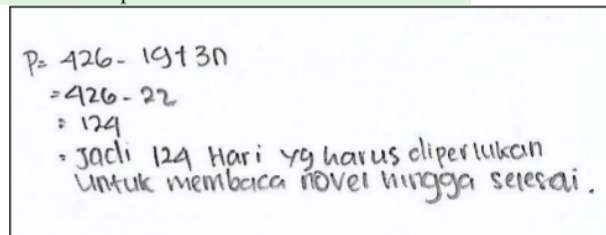 P= 426 - 19+3n
= 426 - 22
= 124
= Jadi 124 Hari yg harus diperlukan
untuk membaca novel hingga selesai.